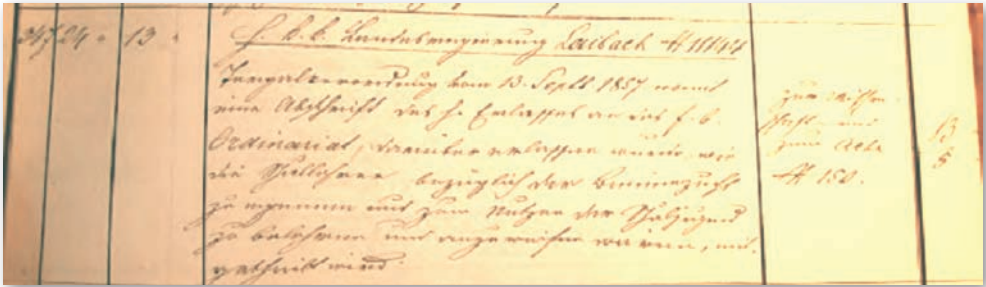 347 24 " 13 "
H. k. k. Landesregierung Laibach № 11144
vom 13. Septb. 1857 womit
eine Abschrift des h. Erlasses an das f. b.
Ordinariat, darüber erlassen wurde, wie
die Schullehrer bezüglich der Bienenzucht
zu und zum Nutzen der Schuljugend
zu belehren und anzuweisen wären, mit-
getheilt wird.
zur Wissen-
schaft und
zum Acte
№ 150.
13
5